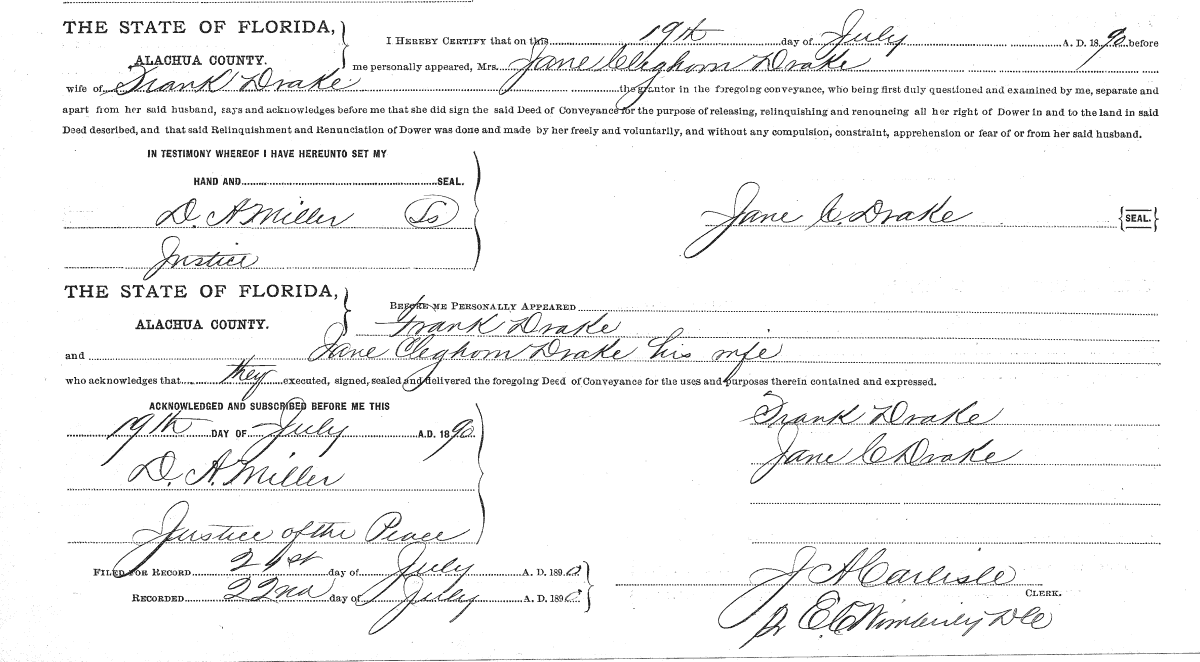 THE STATE OF FLORIDA,
ALACHUA COUNTY.
I HEREBY CERTIFY that on this 19th day of July A. D. 1890 before
me personally appeared, Mrs. Jane Cleghorn Drake
wife of Frank Drake the grantor in the foregoing conveyance, who being first duly questioned and examined by me, separate and
apart from her said husband, says and acknowledges before me that she did sign the said Deed of Conveyance for the purpose of releasing, relinquishing and renouncing all her right of Dower in and to the land in said
Deed described, and that said Relinquishment and Renunciation of Dower was done and made by her freely and voluntarily, and without any compulsion, constraint, apprehension or fear of or from her said husband.
IN TESTIMONY WHEREOF I HAVE HEREUNTO SET MY
HAND AND SEAL.
D. A Miller
Jane C. Drake {SEAL.}
Justice
THE STATE OF FLORIDA,
ALACHUA COUNTY.
BEFORE ME PERSONALLY APPEARED
Frank Drake
and Jane Cleghorn Drake his wife
who acknowledges that they executed, signed, sealed and delivered the foregoing Deed of Conveyance for the uses and purposes therein contained and expressed.
ACKNOWLEDGED AND SUBSCRIBED BEFORE ME THIS
19th DAY OF July A.D. 1890
D. A. Miller
Justice of the Peace
Frank Drake
Jane C Drake
FILED FOR RECORD 21st day of July A. D. 1890
RECORDED 22nd day of July A. D. 1890
J A Carlisle
CLERK.
Pr E C Wimberly DC